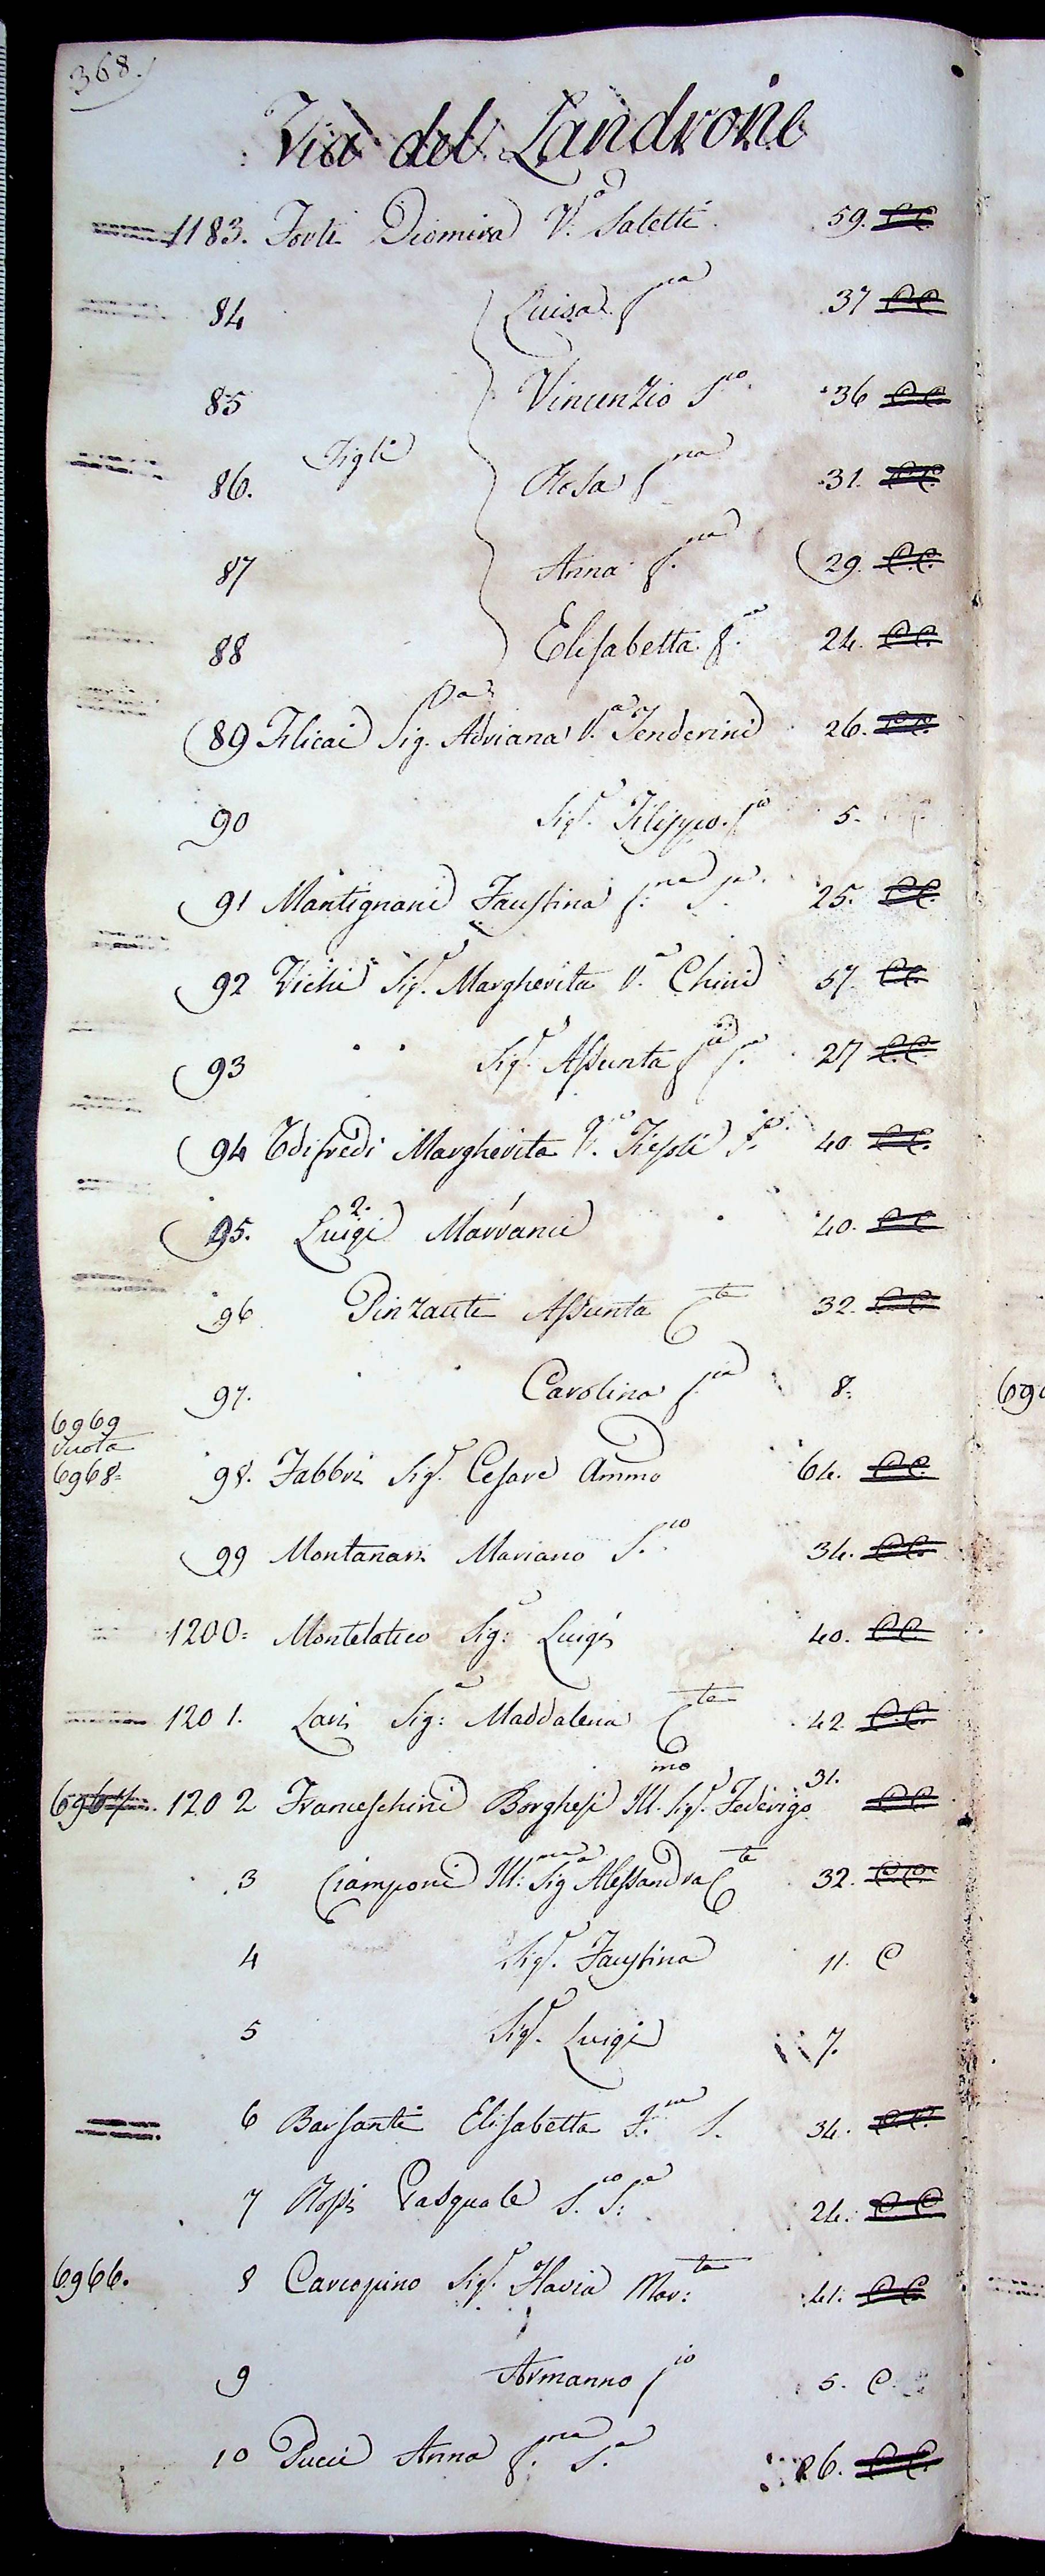 368.
Via del Landrone
1183. Forti Diomira V.a Saletti 59. CC
84 Luisa f.ia 37 CC
85 Vincenzio f.io 36 CC
Figli
86. Rosa f.ia 31. CC
87 Anna f.ia 29. CC
88 Elisabetta f.ia 24. CC
89 Filicai Sig.ra Adriana V.a Tenderini 26. CC
90 Sig.r Filippo f.io 5.
91 Mantignani Faustina 25. CC
92 Vichi Sig.a Margherita V.a Chini 57. CC
93 Sig.a Assunta 27 CC
94 Edifredi Margherita V.a 40. CC
95. Luigi 40. CC
96 Pinzauti Assunta C.te 32. CC
97. Carolina f.ia 8.
6969
vuota
6968. 98. Fabbri Sig.r Cesare Ammo 64. CC
99 Montanari Mariano S.io 34. CC
1200. Montelatico Sig.r Luigi 40. CC
1201. Lari Sig.a Maddalena C.te 42 CC
6967. 1202 Franceschini Borghesi Ill.mo Sig.r Federigo 31. CC
3 Ciamponi Ill.ma Sig.a Alessandra C.te 32. CC
4 Sig.a Faustina 11. C
5 Sig.r Luigi 7.
6 Barsanti Elisabetta S. 34. CC
7 Rossi Pasquale 24. CC
6966. 8 Carcopino Sig.a Flavia Mar.ta 41. CC
9 Armanno f.io 5. C
10 Pucci Anna 26. CC